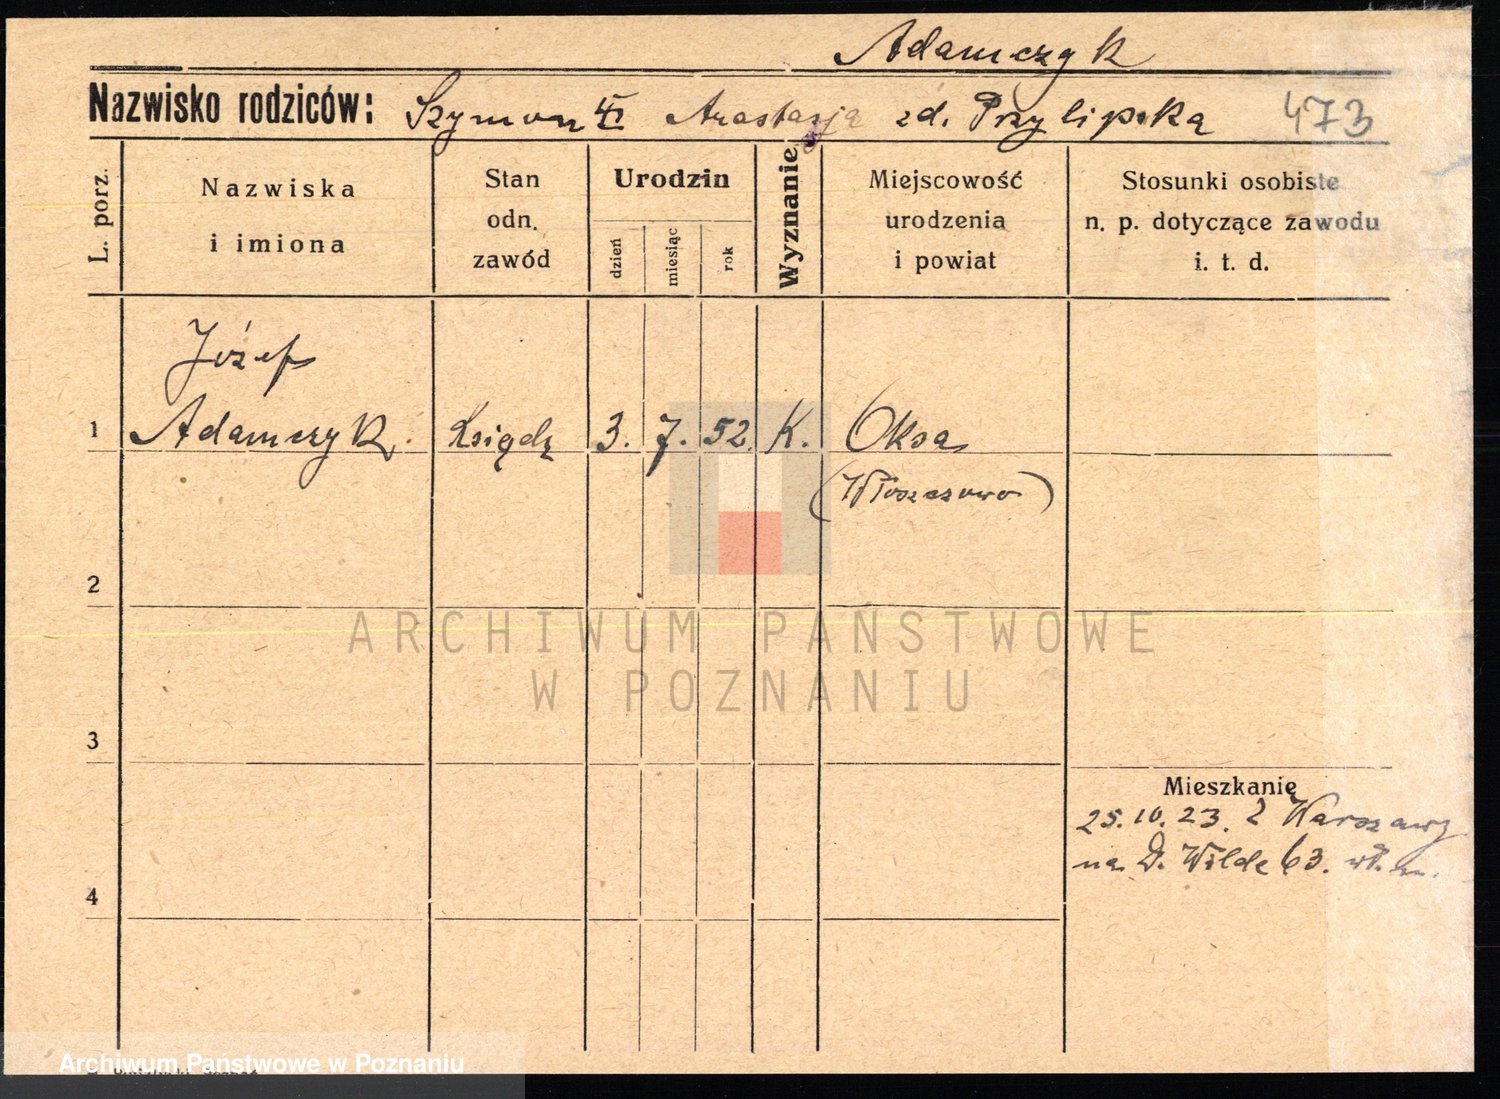 Adamczyk
Nazwisko rodziców: Szymon Anastazja zd. Przylipska 473
L. porz.
Nazwiska
i imiona
Stan
odn.
zawód
Urodzin
dzień
miesiąc
rok
Wyznanie
Miejscowość
urodzenia
i powiat
Stosunki osobiste
n. p. dotyczące zawodu
i. t. d.
Józef
1 Adamczyk. Ksiądz 3. 7. 52. K. Oksa
(Włoszczowo)
2
3
4
Mieszkanie
25.10.23. z Warszawy
na D. Wilde 63.
ARCHIWUM PAŃSTWOWE
W POZNANIU
Archiwum Państwowe w Poznaniu